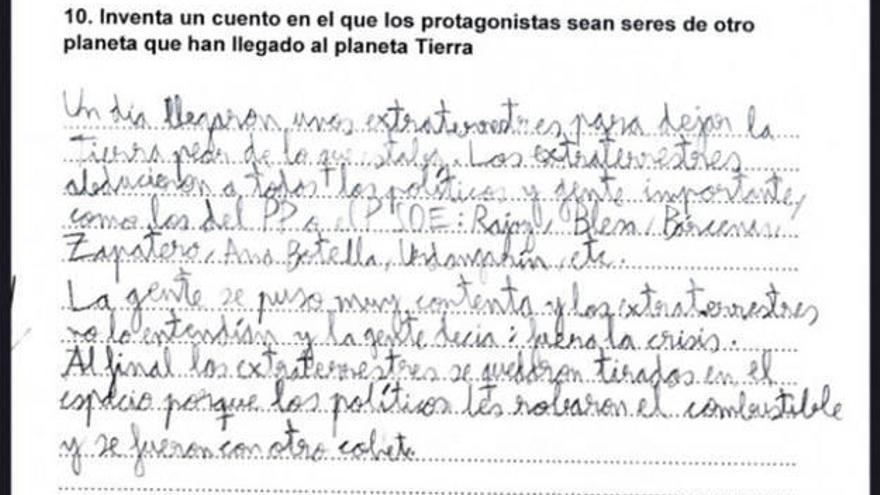 10. Inventa un cuento en el que los protagonistas sean seres de otro
planeta que han llegado al planeta Tierra
Un día llegaron unos extraterrestres para dejar la
Tierra peor de lo que estaba. Los extraterrestres
abducieron a todos los políticos y gente importante,
como los del PP o el PSOE: Rajoy, Blesa, Bárcenas,
Zapatero, Ana Botella, Urdangarín, etc.
La gente se puso muy contenta y los extraterrestres
no lo entendían y la gente decia: fuera la crisis.
Al final los extraterrestres se quedaron tirados en el
espacio porque los políticos les robaron el combustible
y se fueron con otro cohete.